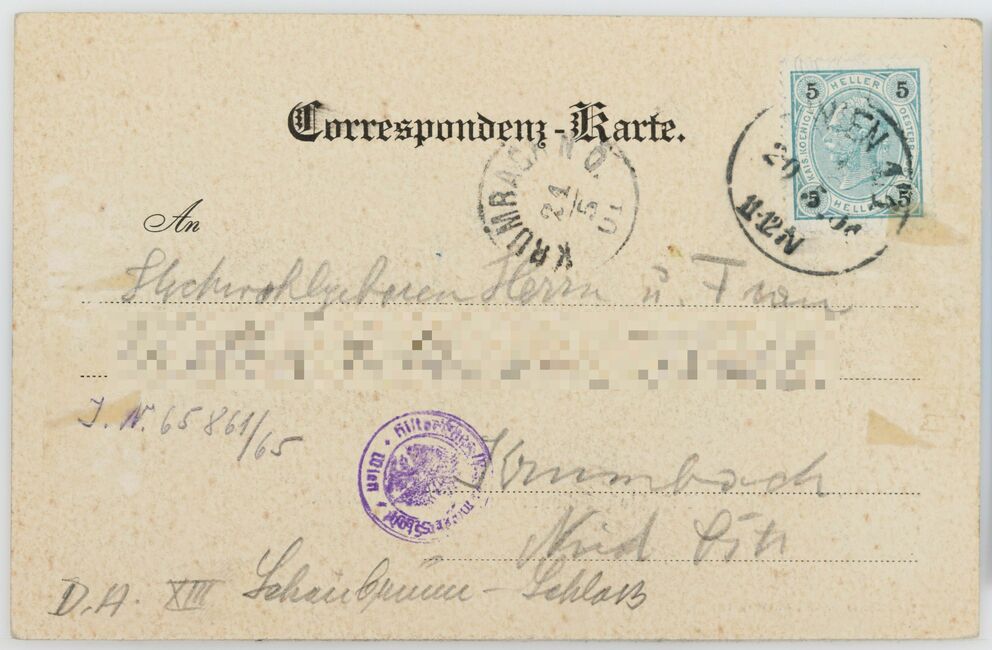 Correspondenz-Karte.
5 HELLER 5
KAIS. KOENIGL. OESTERR.
5 HELLER 5
WIEN
20
11-12 N
KRUMBACH N.Ö.
21/5
01
An
Hochwohlgeboren Herrn u. Frau
Krumbach
J. N. 65861/65
Wien
Nied Öst
D. A. XIII Schönbrunn - Schloß